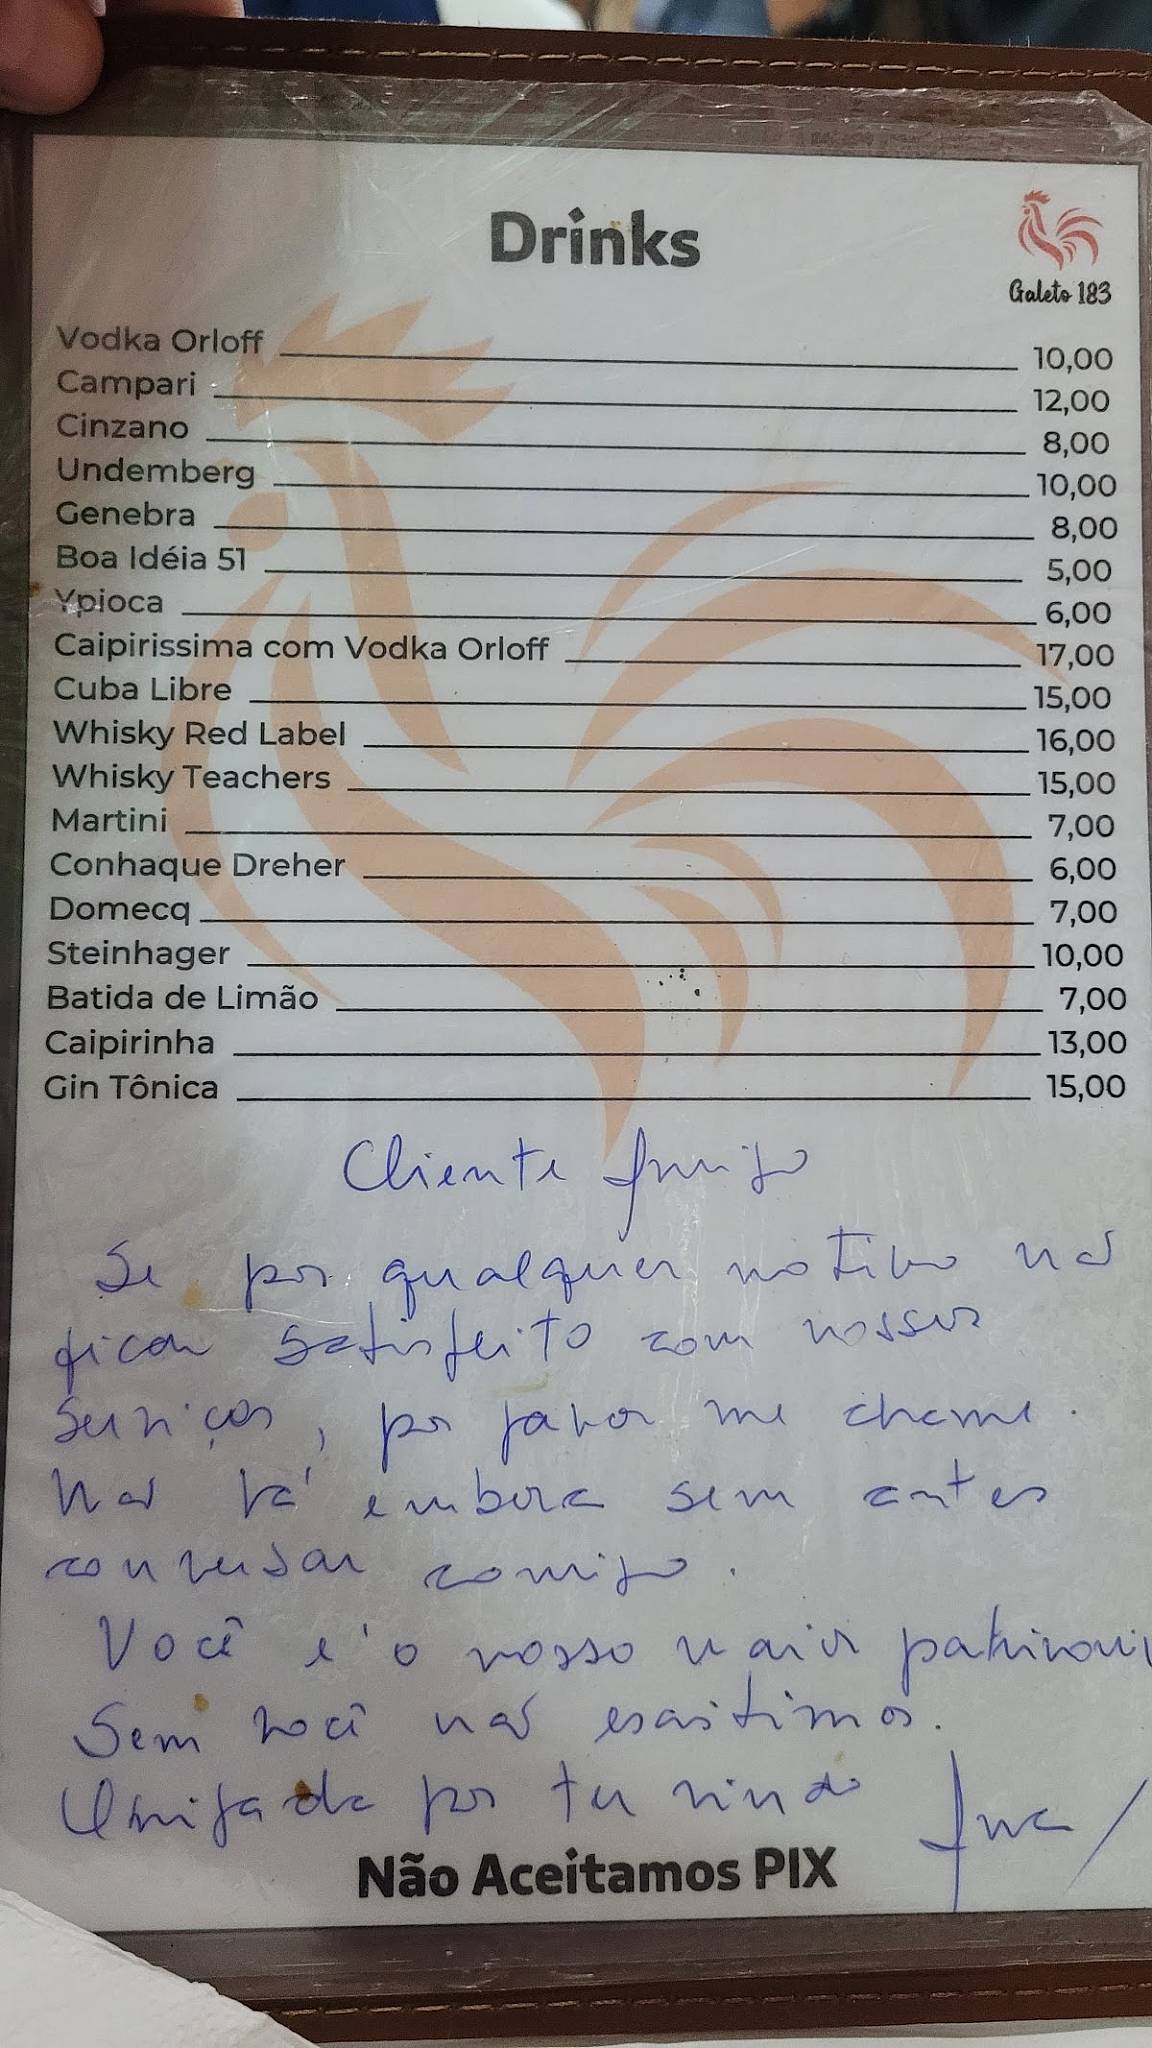 Drinks
Galeto 183
Vodka Orloff 10,00
Campari 12,00
Cinzano 8,00
Undemberg 10,00
Genebra 8,00
Boa Idéia 51 5,00
Ypioca 6,00
Caipirissima com Vodka Orloff 17,00
Cuba Libre 15,00
Whisky Red Label 16,00
Whisky Teachers 15,00
Martini 7,00
Conhaque Dreher 6,00
Domecq 7,00
Steinhager 10,00
Batida de Limão 7,00
Caipirinha 13,00
Gin Tônica 15,00
Cliente Amigo
Se por qualquer motivo não
ficou satisfeito com nossos
serviços, por favor me chame.
Não vá embora sem antes
conversar comigo.
Você é o nosso maior
Sem você não existimos.
Obrigada por ter vindo
Não Aceitamos PIX